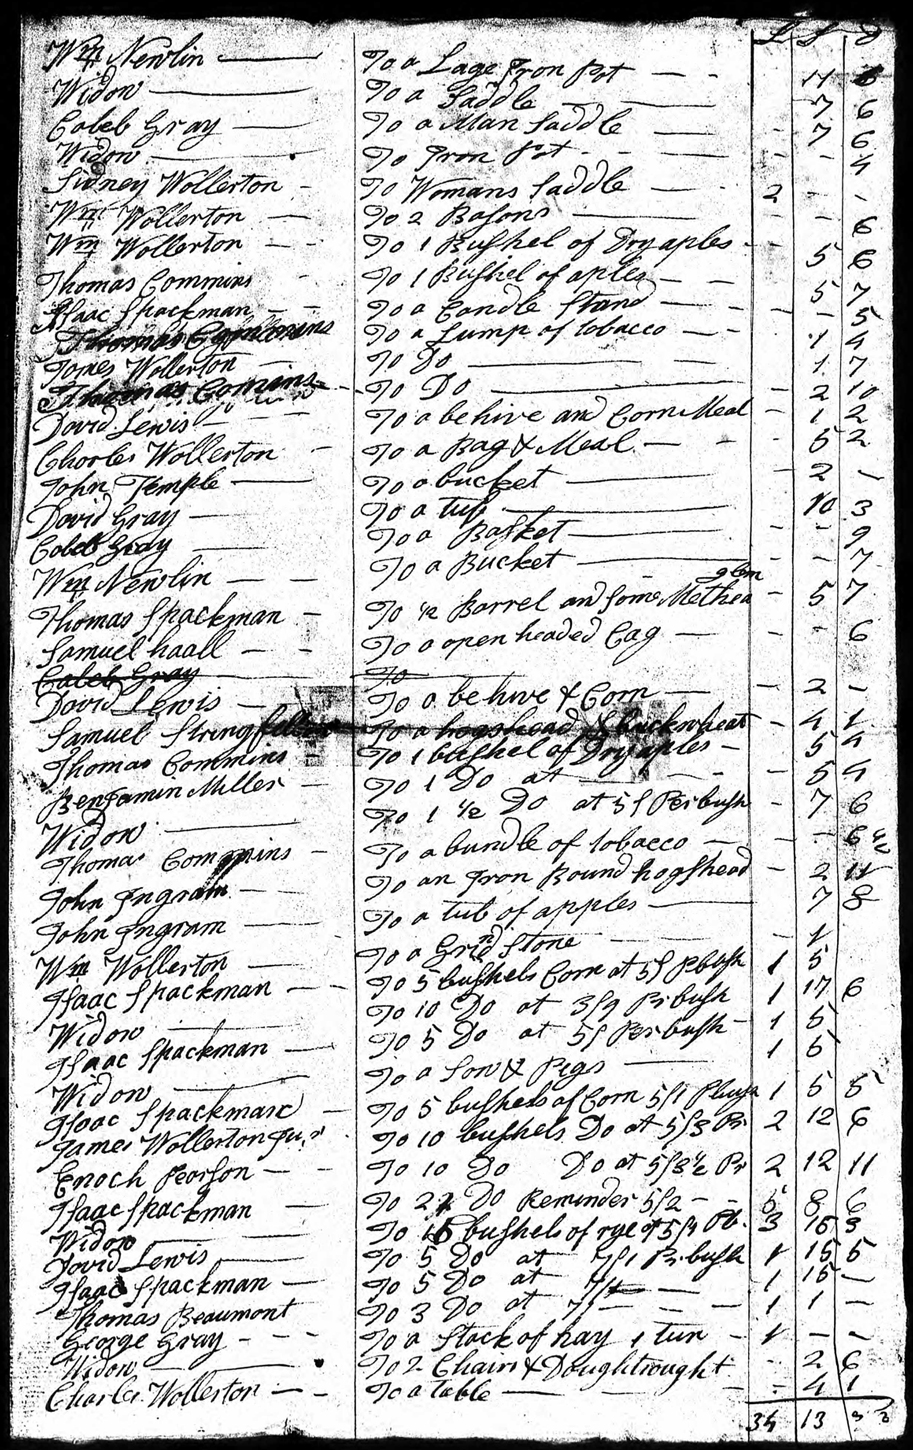 £ S D
Wm Newlin To a Lage Iron Pot 11 6
Widow To a Saddle 7 6
Caleb Gray To a Man Saddle 7 6
Widow To Iron Pot 4
Sidney Wollerton To Womans Saddle 2
Wm Wollerton To 2 Basons 6
Wm Wollerton To 1 Bushel of Dry aples 5 6
Thomas Commins To 1 Bushel of aples 5 7
Isaac Spackman To a Candle Stand 5
Thomas Commins To a Lump of tobacco 1 4
James Wollerton To Do 1 7
Thomas Comins To Do 2 10
David Lewis To a behive and Corn Meal 1 2
Charles Wollerton To a Bag & Meal 5 2
John Temple To a bucket 2
David Gray To a tub 10 3
Caleb Gray To a Basket 9
Wm Newlin To a Bucket 7
Thomas Spackman To ½ Barrel and Some Methea 5 7
Samuel haall To a open headed Cag 6
Caleb Gray To
David Lewis To a behive & Corn 2
Samuel Stringfellow To a hogshead & buckwheat 4 1
Thomas Commins To 1 bushel of Dry aples 5 4
Benjamin Miller To 1 Do at 5 4
Widow To 1 ½ Do at 5/ Per bush 7 6
Thomas Commins To a bundle of tobacco 6 ½
John Ingram To an Iron Bound hogshead 2 11
John Ingram To a tub of apples 7 8
Wm Wollerton To a Grind Stone 1
Isaac Spackman To 5 bushels Corn at 5/ P bush 1 5
Widow To 10 Do at 3/9 Pr bush 1 17 6
Isaac Spackman To 5 Do at 5/ Per bush 1 5
Widow To a Sow & Pigs 1 5
Isaac Spackman To 5 bushels of Corn 5/1 P bush 1 5 5
James Wollerton Junr To 10 bushels Do at 5/3 Pr 2 12 6
Enoch Pearson To 10 Do Do at 5/3½ Pr 2 12 11
Isaac Spackman To 21 Do Reminder 5/2 5 8 6
Widow To 15 bushels of rye at 5/1 Pb. 3 16 3
David Lewis To 5 Do at 7/1 Pr bush 1 15 5
Isaac Spackman To 5 Do at 7/ 1 15
Thomas Beaumont To 3 Do at 7/ 1 1
George Gray To a Stack of hay 1 tun 1
Widow To 2 Chairs & Doughtrought 2 6
Charles Wollerton To a table 4 1
34 13 3 ½